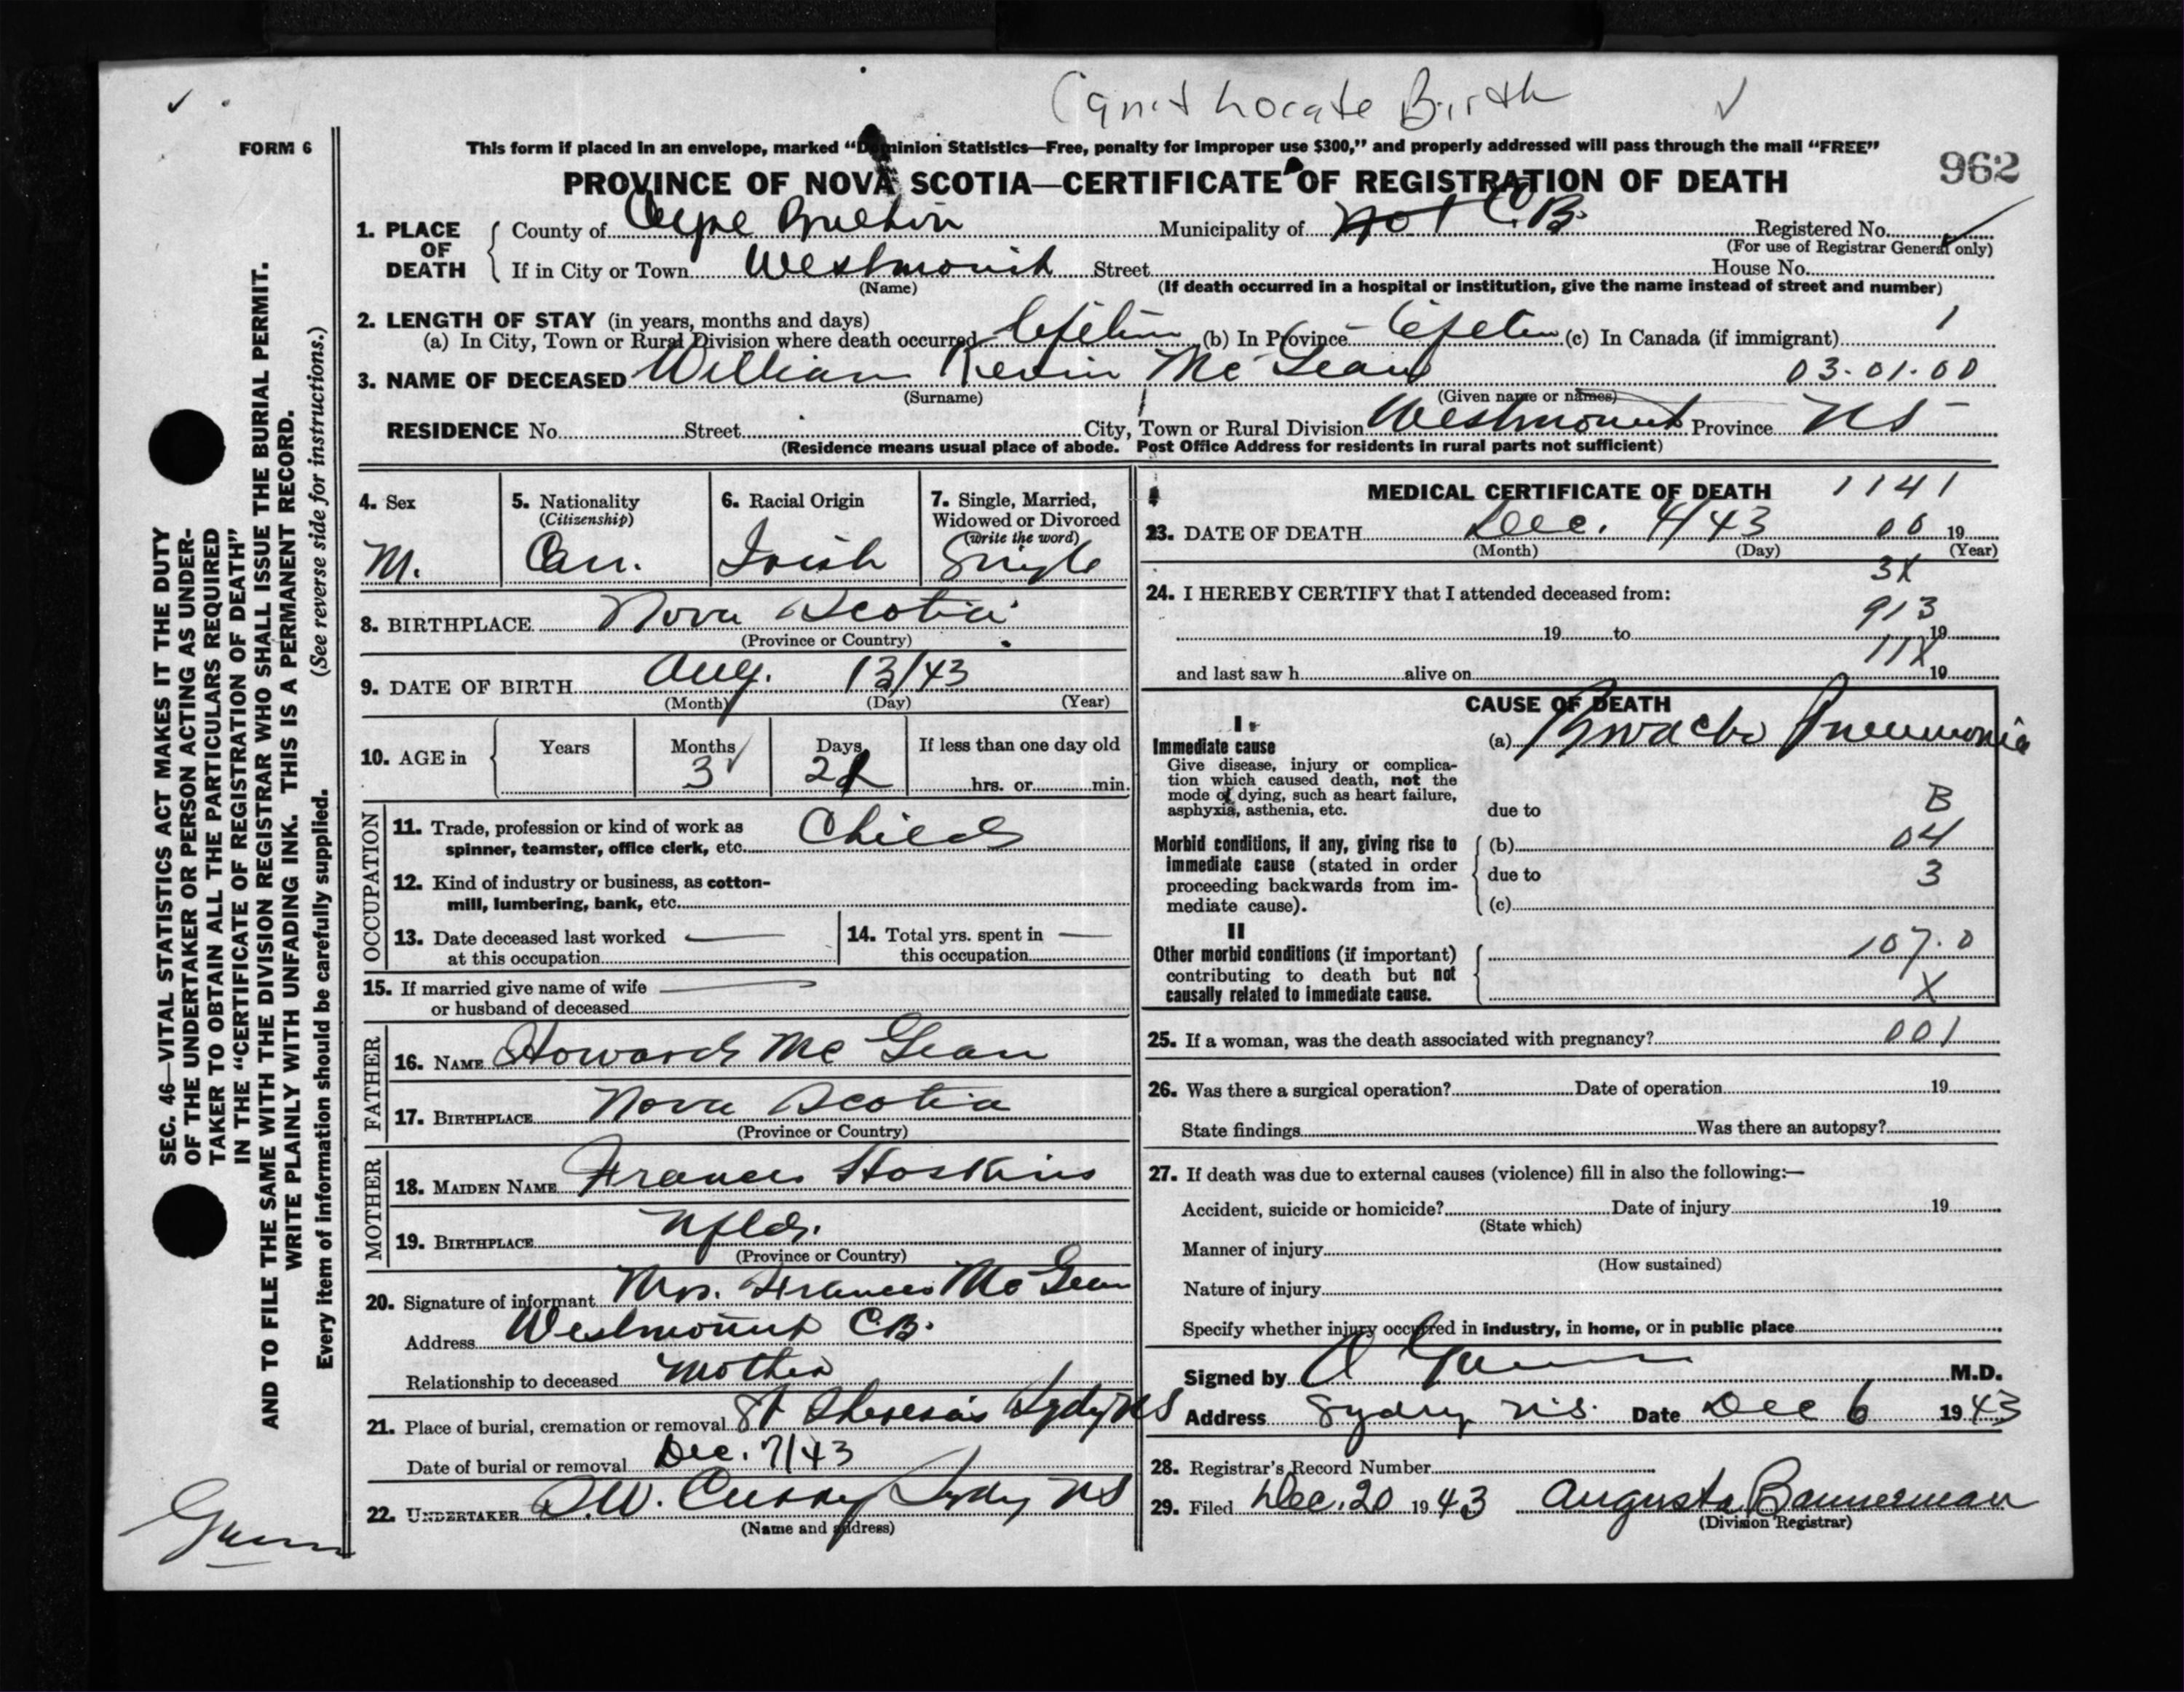 Can't Locate Birth
FORM 6
This form if placed in an envelope, marked “Dominion Statistics—Free, penalty for improper use $300,” and properly addressed will pass through the mail “FREE”
962
PROVINCE OF NOVA SCOTIA—CERTIFICATE OF REGISTRATION OF DEATH
1. PLACE OF DEATH
County of Cape Breton Municipality of C.B. Registered No.
(For use of Registrar General only)
If in City or Town Westmount Street House No.
(Name) (If death occurred in a hospital or institution, give the name instead of street and number)
2. LENGTH OF STAY (in years, months and days)
(a) In City, Town or Rural Division where death occurred Lifetime (b) In Province Lifetime (c) In Canada (if immigrant) 1
3. NAME OF DECEASED William Kevin Mc Lean 03.01.00
(Surname) (Given name or names)
RESIDENCE No. Street City, Town or Rural Division Westmount Province NS
(Residence means usual place of abode. Post Office Address for residents in rural parts not sufficient)
4. Sex M.
5. Nationality (Citizenship) Can.
6. Racial Origin Irish
7. Single, Married, Widowed or Divorced (write the word) Single
8. BIRTHPLACE Nova Scotia
(Province or Country)
9. DATE OF BIRTH Aug. 13/43
(Month) (Day) (Year)
10. AGE in Years Months 3 Days If less than one day old hrs. or min.
OCCUPATION
11. Trade, profession or kind of work as spinner, teamster, office clerk, etc. Child
12. Kind of industry or business, as cotton-mill, lumbering, bank, etc.
13. Date deceased last worked at this occupation
14. Total yrs. spent in this occupation
15. If married give name of wife or husband of deceased
FATHER
16. NAME Howard Mc Lean
17. BIRTHPLACE Nova Scotia
(Province or Country)
MOTHER
18. MAIDEN NAME Frances Hoskins
19. BIRTHPLACE Nfld.
(Province or Country)
20. Signature of informant Mrs. Frances Mc Lean
Address Westmount C.B.
Relationship to deceased Mother
21. Place of burial, cremation or removal St Theresa's Sydney NS
Date of burial or removal Dec. 7/43
22. UNDERTAKER Curry Sydney NS
(Name and address)
MEDICAL CERTIFICATE OF DEATH 1141
23. DATE OF DEATH Dec. 4/43 00 19
(Month) (Day) (Year)
3X
24. I HEREBY CERTIFY that I attended deceased from:
913
19 to 19
11X
and last saw h alive on 19
CAUSE OF DEATH
I
Immediate cause
Give disease, injury or complication which caused death, not the mode of dying, such as heart failure, asphyxia, asthenia, etc.
(a) Broncho Pneumonia
due to B
Morbid conditions, if any, giving rise to immediate cause (stated in order proceeding backwards from immediate cause).
(b) 04
due to 3
(c)
II
Other morbid conditions (if important) contributing to death but not causally related to immediate cause.
107.0
X
25. If a woman, was the death associated with pregnancy? 001
26. Was there a surgical operation? Date of operation 19
State findings Was there an autopsy?
27. If death was due to external causes (violence) fill in also the following:—
Accident, suicide or homicide? Date of injury 19
(State which)
Manner of injury
(How sustained)
Nature of injury
Specify whether injury occurred in industry, in home, or in public place
Signed by A Gunn M.D.
Address Sydney N.S. Date Dec 6 1943
28. Registrar's Record Number
29. Filed Dec. 20 1943 Augusta Bannerman
(Division Registrar)
SEC. 46—VITAL STATISTICS ACT MAKES IT THE DUTY
OF THE UNDERTAKER OR PERSON ACTING AS UNDER-
TAKER TO OBTAIN ALL THE PARTICULARS REQUIRED
IN THE “CERTIFICATE OF REGISTRATION OF DEATH”
AND TO FILE THE SAME WITH THE DIVISION REGISTRAR WHO SHALL ISSUE THE BURIAL PERMIT.
WRITE PLAINLY WITH UNFADING INK. THIS IS A PERMANENT RECORD.
Every item of information should be carefully supplied. (See reverse side for instructions.)
Gunn